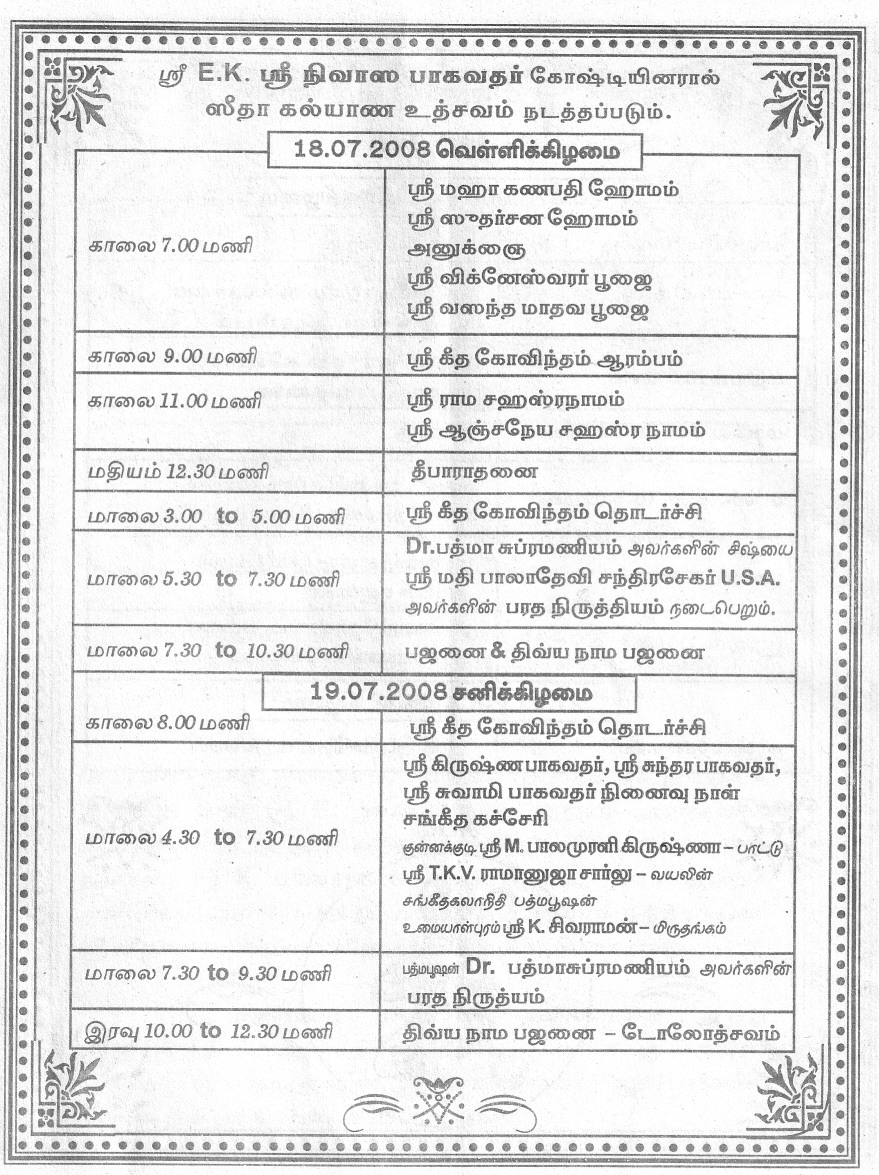 ஸ்ரீ E.K. ஸ்ரீ நிவாஸ பாகவதர் கோஷ்டியினரால்
ஸீதா கல்யாண உத்சவம் நடத்தப்படும்.
18.07.2008 வெள்ளிக்கிழமை
காலை 7.00 மணி
ஸ்ரீ மஹா கணபதி ஹோமம்
ஸ்ரீ ஸுதர்சன ஹோமம்
அனுக்ஞை
ஸ்ரீ விக்னேஸ்வரர் பூஜை
ஸ்ரீ வஸந்த மாதவ பூஜை
காலை 9.00 மணி
ஸ்ரீ கீத கோவிந்தம் ஆரம்பம்
காலை 11.00 மணி
ஸ்ரீ ராம சஹஸ்ரநாமம்
ஸ்ரீ ஆஞ்சநேய சஹஸ்ர நாமம்
மதியம் 12.30 மணி
தீபாராதனை
மாலை 3.00 to 5.00 மணி
ஸ்ரீ கீத கோவிந்தம் தொடர்ச்சி
மாலை 5.30 to 7.30 மணி
Dr.பத்மா சுப்ரமணியம் அவர்களின் சிஷ்யை
ஸ்ரீ மதி பாலாதேவி சந்திரசேகர் U.S.A.
அவர்களின் பரத நிருத்தியம் நடைபெறும்.
மாலை 7.30 to 10.30 மணி
பஜனை & திவ்ய நாம பஜனை
19.07.2008 சனிக்கிழமை
காலை 8.00 மணி
ஸ்ரீ கீத கோவிந்தம் தொடர்ச்சி
மாலை 4.30 to 7.30 மணி
ஸ்ரீ கிருஷ்ண பாகவதர், ஸ்ரீ சுந்தர பாகவதர்,
ஸ்ரீ சுவாமி பாகவதர் நினைவு நாள்
சங்கீத கச்சேரி
குன்னக்குடி ஸ்ரீ M. பாலமுரளி கிருஷ்ணா – பாட்டு
ஸ்ரீ T.K.V. ராமானுஜா சார்லு – வயலின்
சங்கீதகலாநிதி பத்மபூஷன்
உமையாள்புரம் ஸ்ரீ K. சிவராமன் – மிருதங்கம்
மாலை 7.30 to 9.30 மணி
பத்மபூஷன் Dr. பத்மாசுப்ரமணியம் அவர்களின்
பரத நிருத்யம்
இரவு 10.00 to 12.30 மணி
திவ்ய நாம பஜனை – டோலோத்சவம்